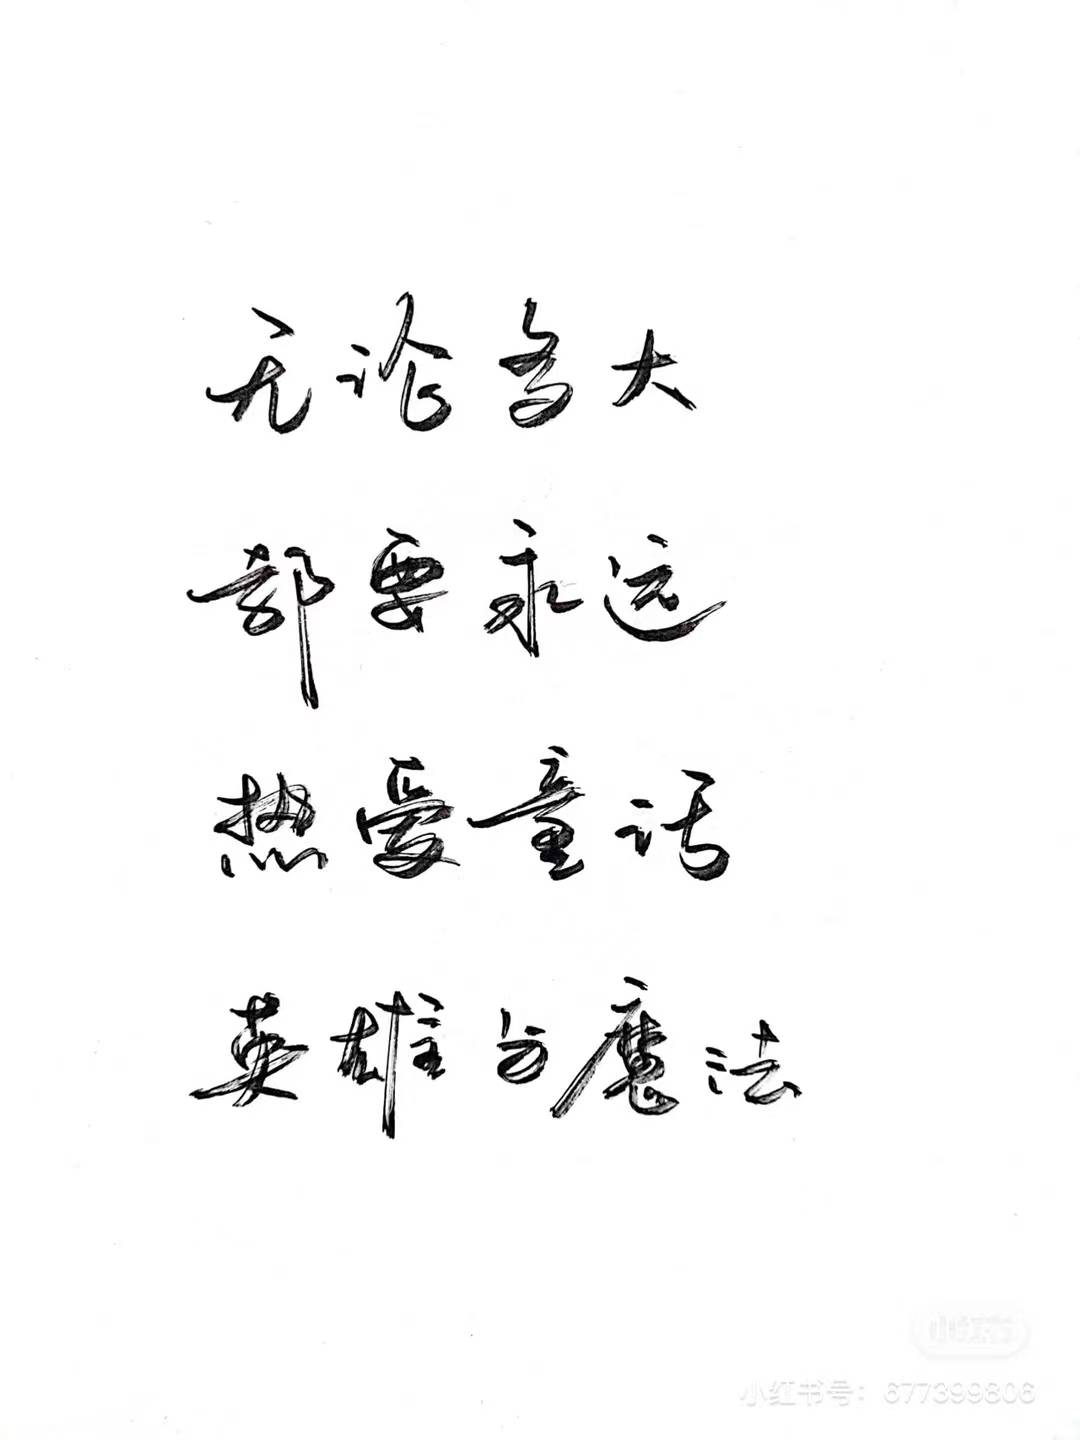 无论多大
都要永远
热爱童话
英雄与魔法
小红书
小红书号：677399806